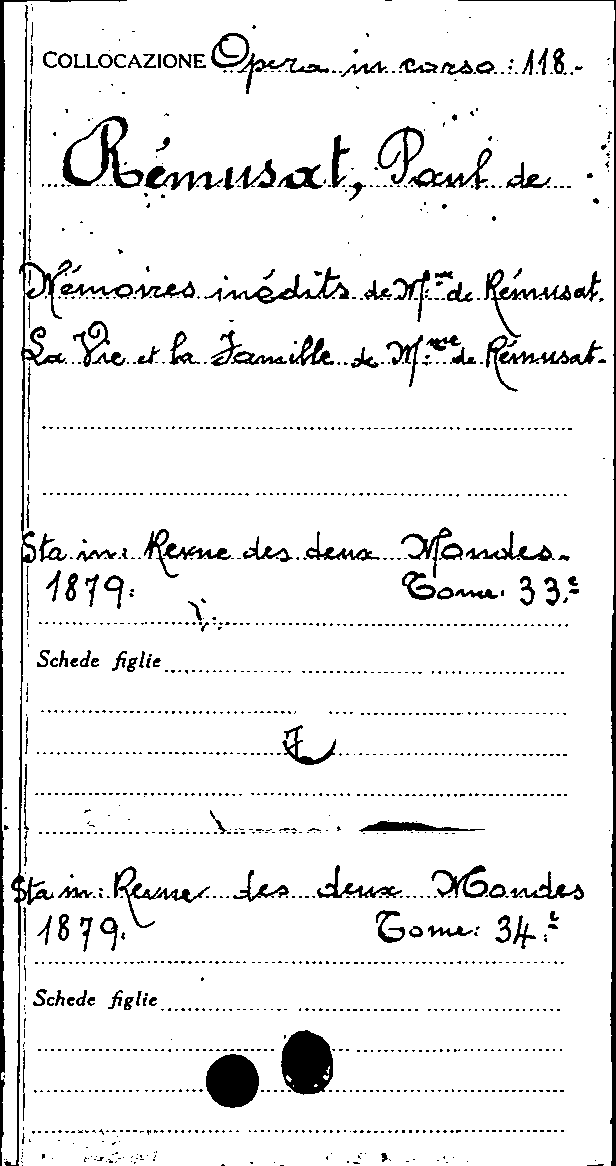 COLLOCAZIONE Opera in corso: 118.
Rémusat, Paul de
Mémoires inédits de M.me de Rémusat.
La Vie et la Famille de M.me de Rémusat.
Sta in: Revue des deux Mondes.
1879. Tome: 33.e
Schede figlie
Sta in: Revue des deux Mondes
1879. Tome: 34.e
Schede figlie